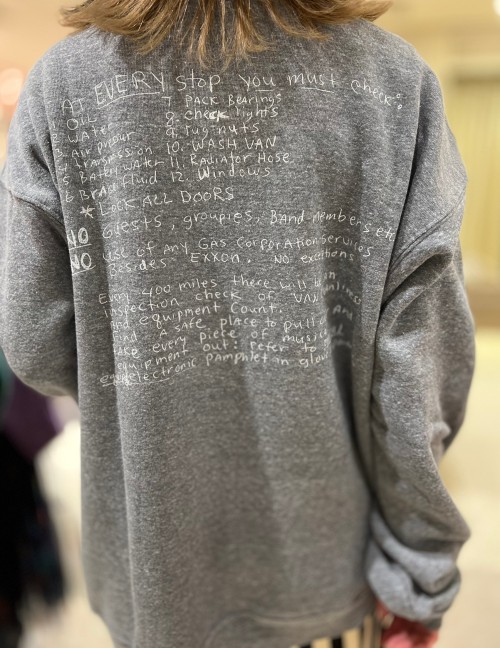 AT EVERY stop you must check:
OIL 7. PACK BEARINGS
2. Water 8. check lights
3. Air 9. lug-nuts
4. transmission 10. WASH VAN
5. Battery Water 11. Radiator Hose
6 Brake fluid 12. Windows
* LOCK ALL DOORS
NO Guests, groupies, BAND-members etc
NO use of ANY GAS CORPORATION Services
Besides EXXON. NO exceptions
Every 400 miles there will be an
inspection check of VAN
and equipment count.
Find A safe place to pull
take every piece of musical
equipment out: refer to
electronic pamphlet in glove